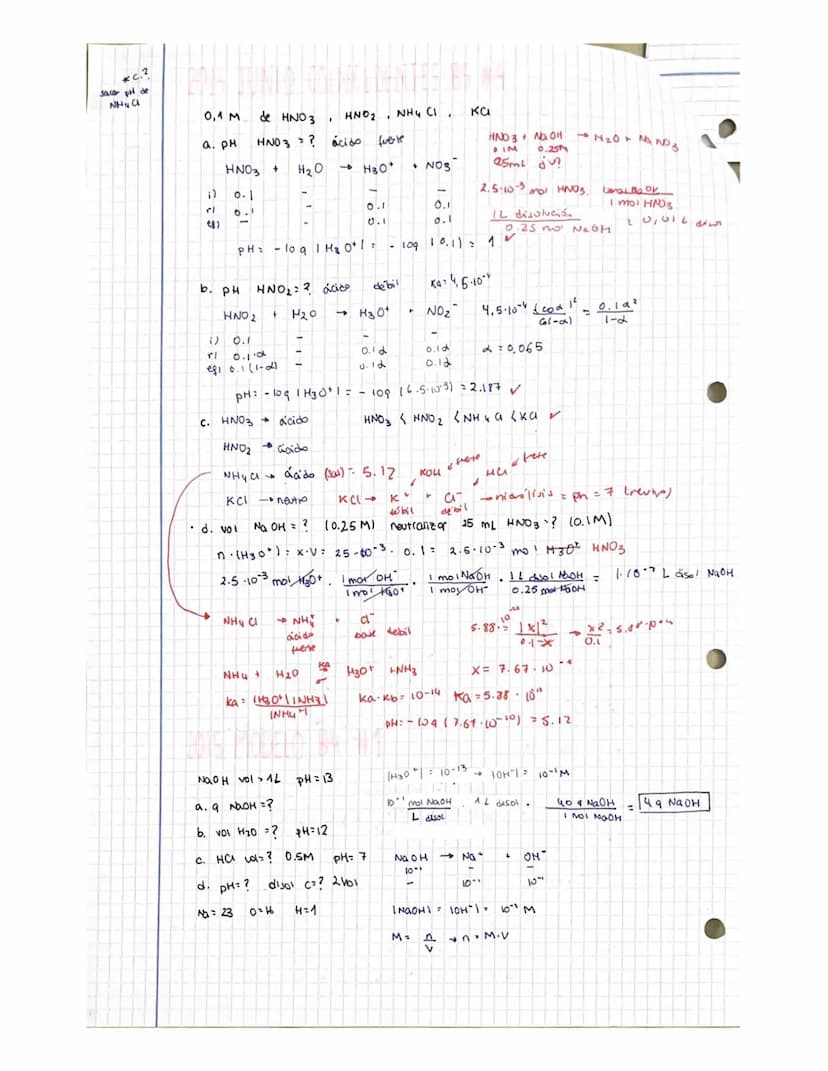 * c.?
sacar pH de
NH4Cl
0,1 M de HNO3, HNO2, NH4Cl, KCl
a. pH HNO3=? ácido fuerte
HNO3 + H2O → H3O+ + NO3-
i) 0.1 - - -
r) 0.1 - 0.1 0.1
eq) - - 0.1 0.1
pH = -log |H3O+| = -log |0.1| = 1 ✓
HNO3 + NaOH → H2O + NaNO3
0.1M 0.25M
25mL ¿v?
2.5·10-3 mol HNO3. 1 mol NaOH / 1 mol HNO3
1L disolución / 0.25 mol NaOH = 0,01 L
b. pH HNO2=? ácido débil Ka=4,5·10-4
HNO2 + H2O → H3O+ + NO2-
4,5·10-4 (c0α)2 / c0(1-α) = 0.1α2 / 1-α
i) 0.1 - - -
r) 0.1·α - 0.1α 0.1α
eq) 0.1(1-α) - 0.1α 0.1α
α = 0,065
pH = -log |H3O+| = -log (6.5·10-3) = 2.187 ✓
c. HNO3 → ácido HNO3 < HNO2 < NH4Cl < KCl ✓
HNO2 → ácido
NH4Cl → ácido (sal) = 5.12 KOH fuerte HCl fuerte
KCl → neutro KCl → K+ + Cl- → hidrólisis = pH = 7 (neutro)
débil débil
· d. vol NaOH=? (0.25M) neutralizar 25 mL HNO3 -? (0.1M)
n·(H3O+) = x·V = 25·10-3 · 0.1 = 2.5·10-3 mol H3O+ HNO3
2.5·10-3 mol H3O+ · 1 mol OH- / 1 mol H3O+ · 1 mol NaOH / 1 mol OH- · 1L disol NaOH / 0.25 mol NaOH = 1·10-2 L disol NaOH
NH4Cl → NH4+ + Cl-
ácido fuerte base debil
5.88·10 = |x|2 / 0.1-x → x2 / 0.1
NH4 + H2O Ka H3O+ + NH3 x = 7.67·10
Ka = |H3O+| |NH3| / |NH4+| Ka·Kb = 10-14 Ka = 5.88·10
pH = -log (7.67·10) = 5.12
NaOH vol = 1L pH = 13 |H3O+| = 10-13 → |OH-| = 10-1 M
a. g NaOH=? 10-1 mol NaOH / L disol · 1L disol · 40 g NaOH / 1 mol NaOH = 4g NaOH
b. vol H2O =? pH=12
c. HCl vol=? 0.5M pH= 7 NaOH → Na+ + OH-
10-1 - -
d. pH=? disol c=? 2 vol - 10-1 10-1
Na = 23 O=16 H=1 |NaOH| = |OH-| = 10-1 M
M = n / V → n = M·V